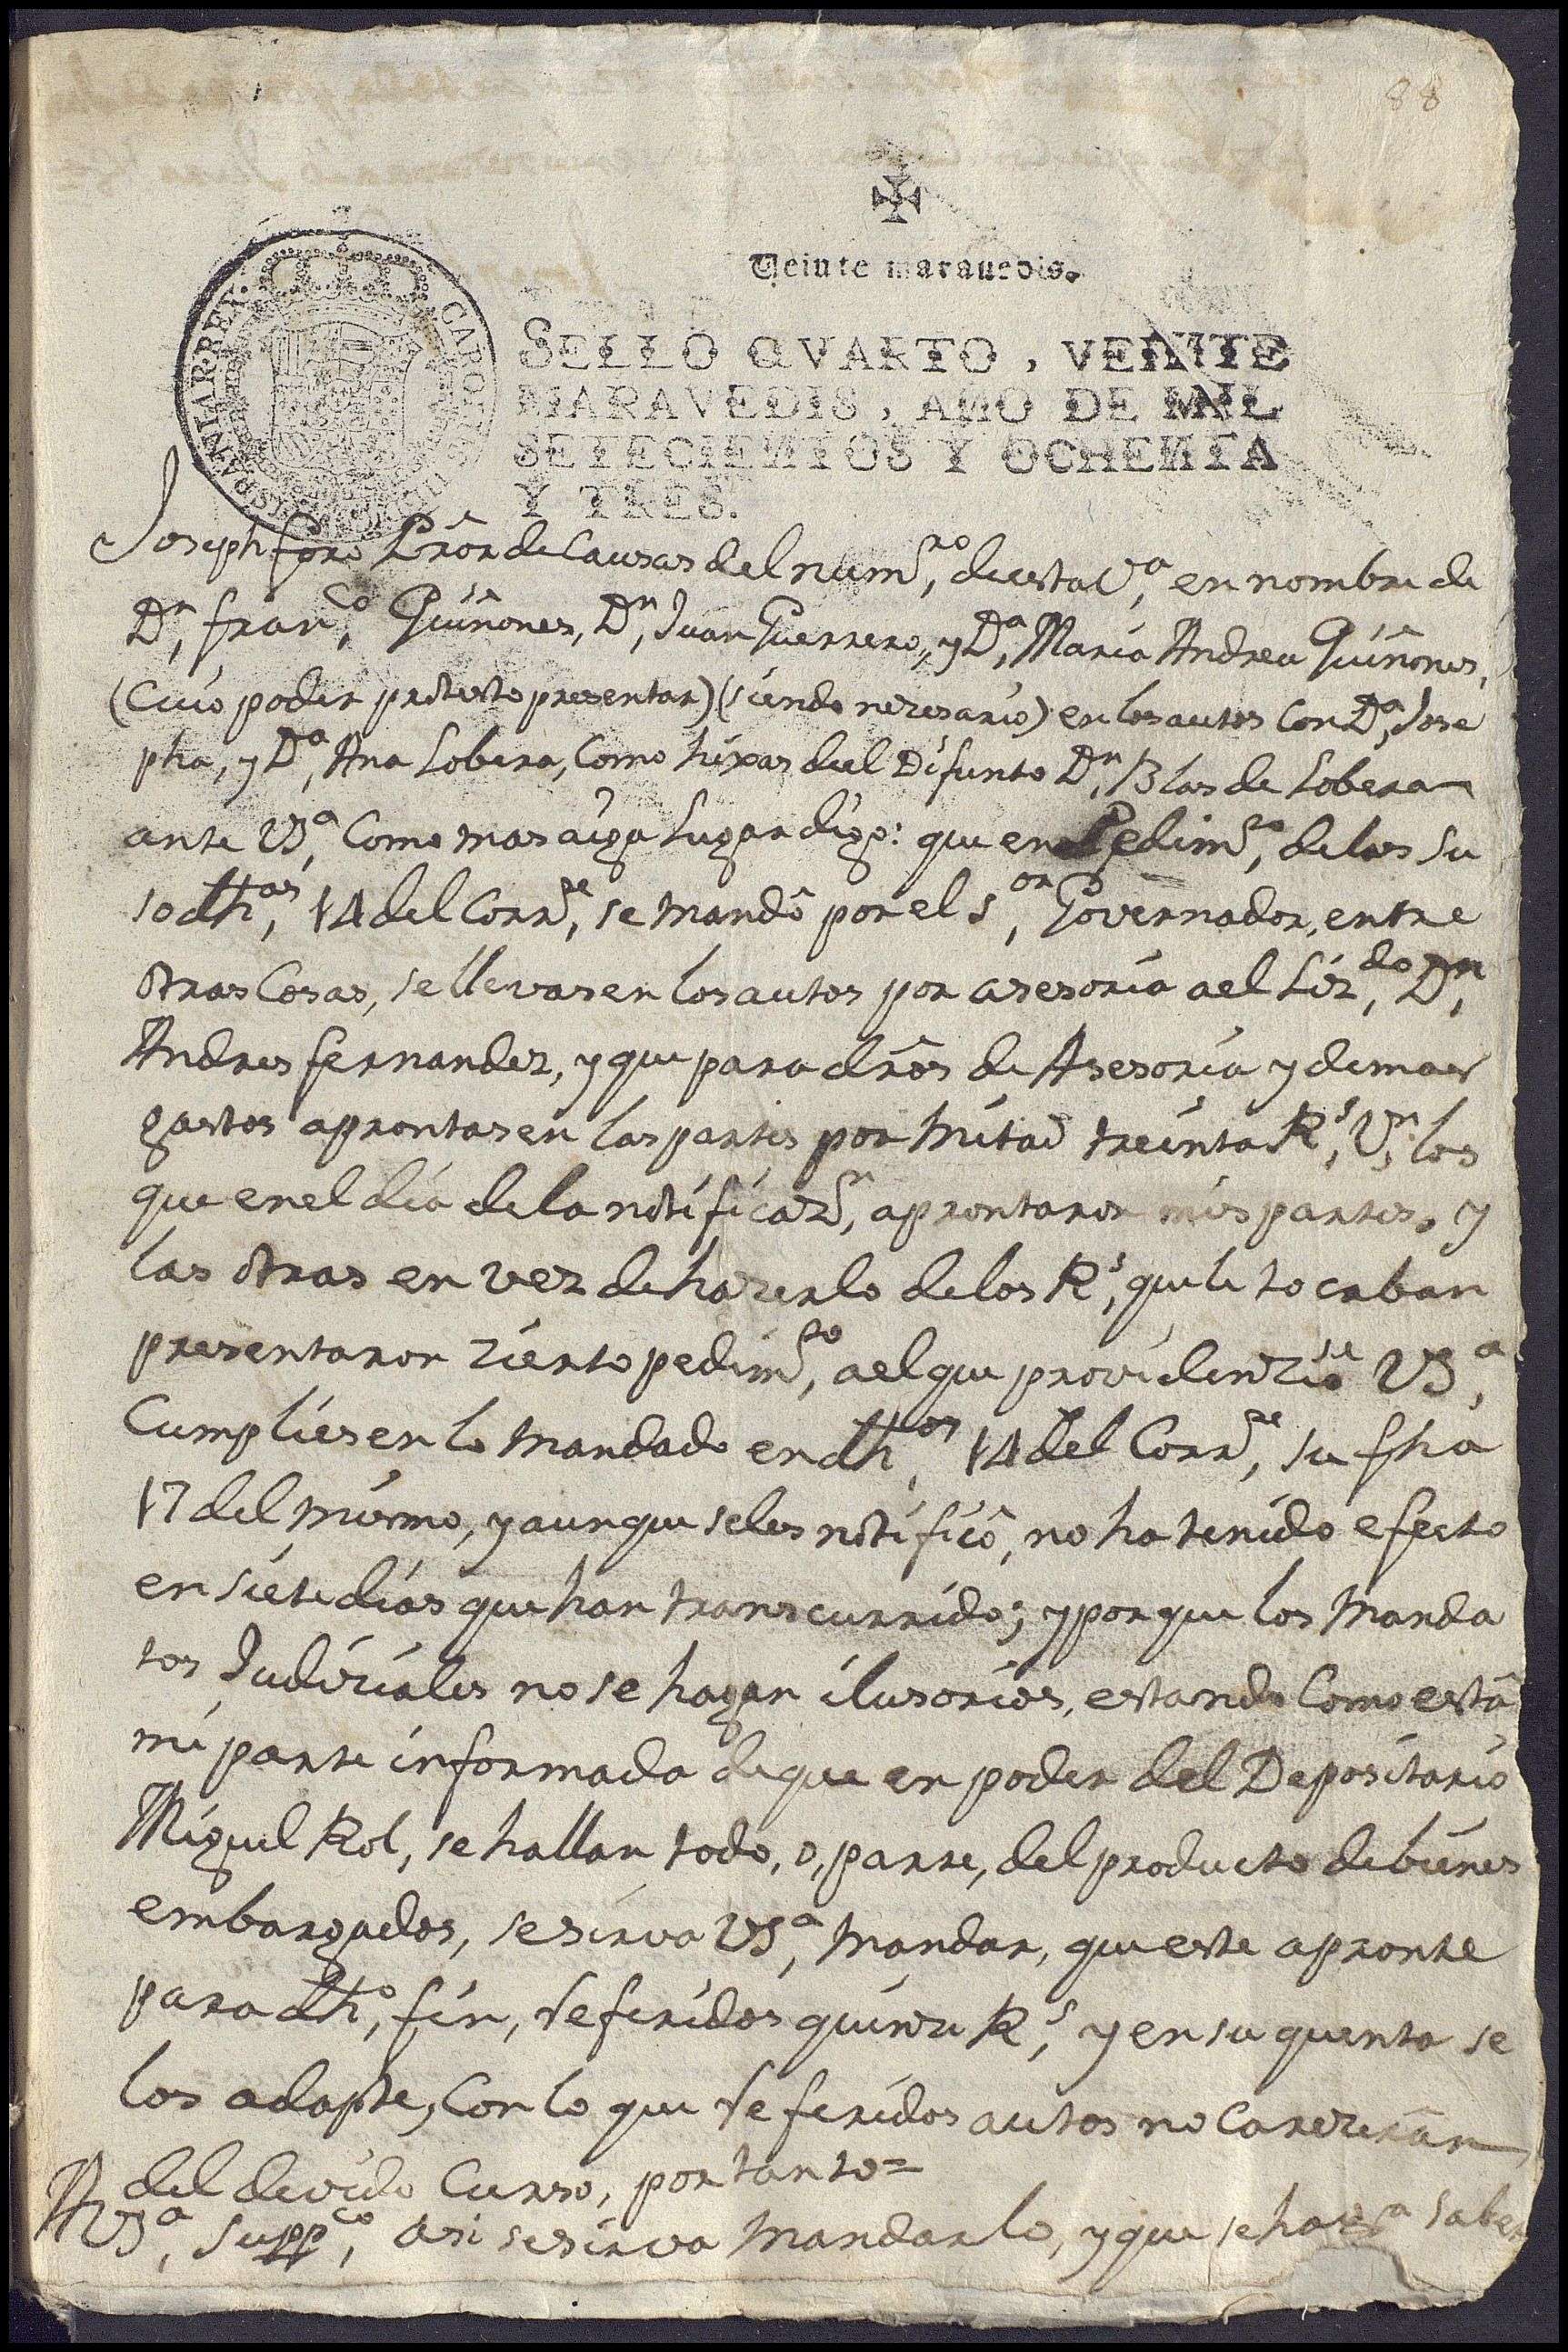 88
Veinte maravedis.
SELLO QVARTO, VEINTE
MARAVEDIS, AÑO DE MIL
SETECIENTOS Y OCHENTA
Y TRES.
CAROLUS III D G HISPANIAR REX
Joseph Prôr de Causas del numro, de esta Va, en nombre de
Dn, Franco, Quiñones, Dn, Juan Guerrero, y Da, Maria Andrea Quiñones,
(Cuio poder protesto presentar) (siendo nezesario) en los autos Con Da, Jose
pha, y Da, Ana Lobera, Como hixas del Difunto Dn, Blas de Lobera
ante VSa, Como mas aiga Lugar digo: que en Pedimto, de las su
so dhas, 14 del Corrte, se mandô por el Sor, Governador, entre
otras Cosas, se llevasen los autos por asesoria a el Lizdo, Dn,
Andres Fernandez, y que para drôs de Asesoria y demas
gastos aprontasen las partes por mitad treinta Rs, Vn, los
que en el dia de la notificazn, aprontaron mis partes, y
las otras en vez de hazerlo de los Rs, que le tocaban
presentaron zierto pedimto, a el que providenziô se VSa,
Cumpliesen lo mandado en dhos, 14 del Corrte, su fha
17 del mismo, y aunque se les notificô, no ha tenido efecto
en siete dias que han transcurrido; y porque los manda
tos Judiziales no se hagan ilusorios, estando Como está
mi parte informada de que en poder del Depositario
Miguel Rol, se hallan todo, o, parte, del producto de bienes
embargados, se sirva VSa, mandar, que este apronte
para dho, fin, referidos quinze Rs, y en su quenta se
los adapte, Con lo que referidos autos no Carezeràn
del devido Curso, por tanto=
A VSa, suppco, asi se sirva mandarlo, y que se saber